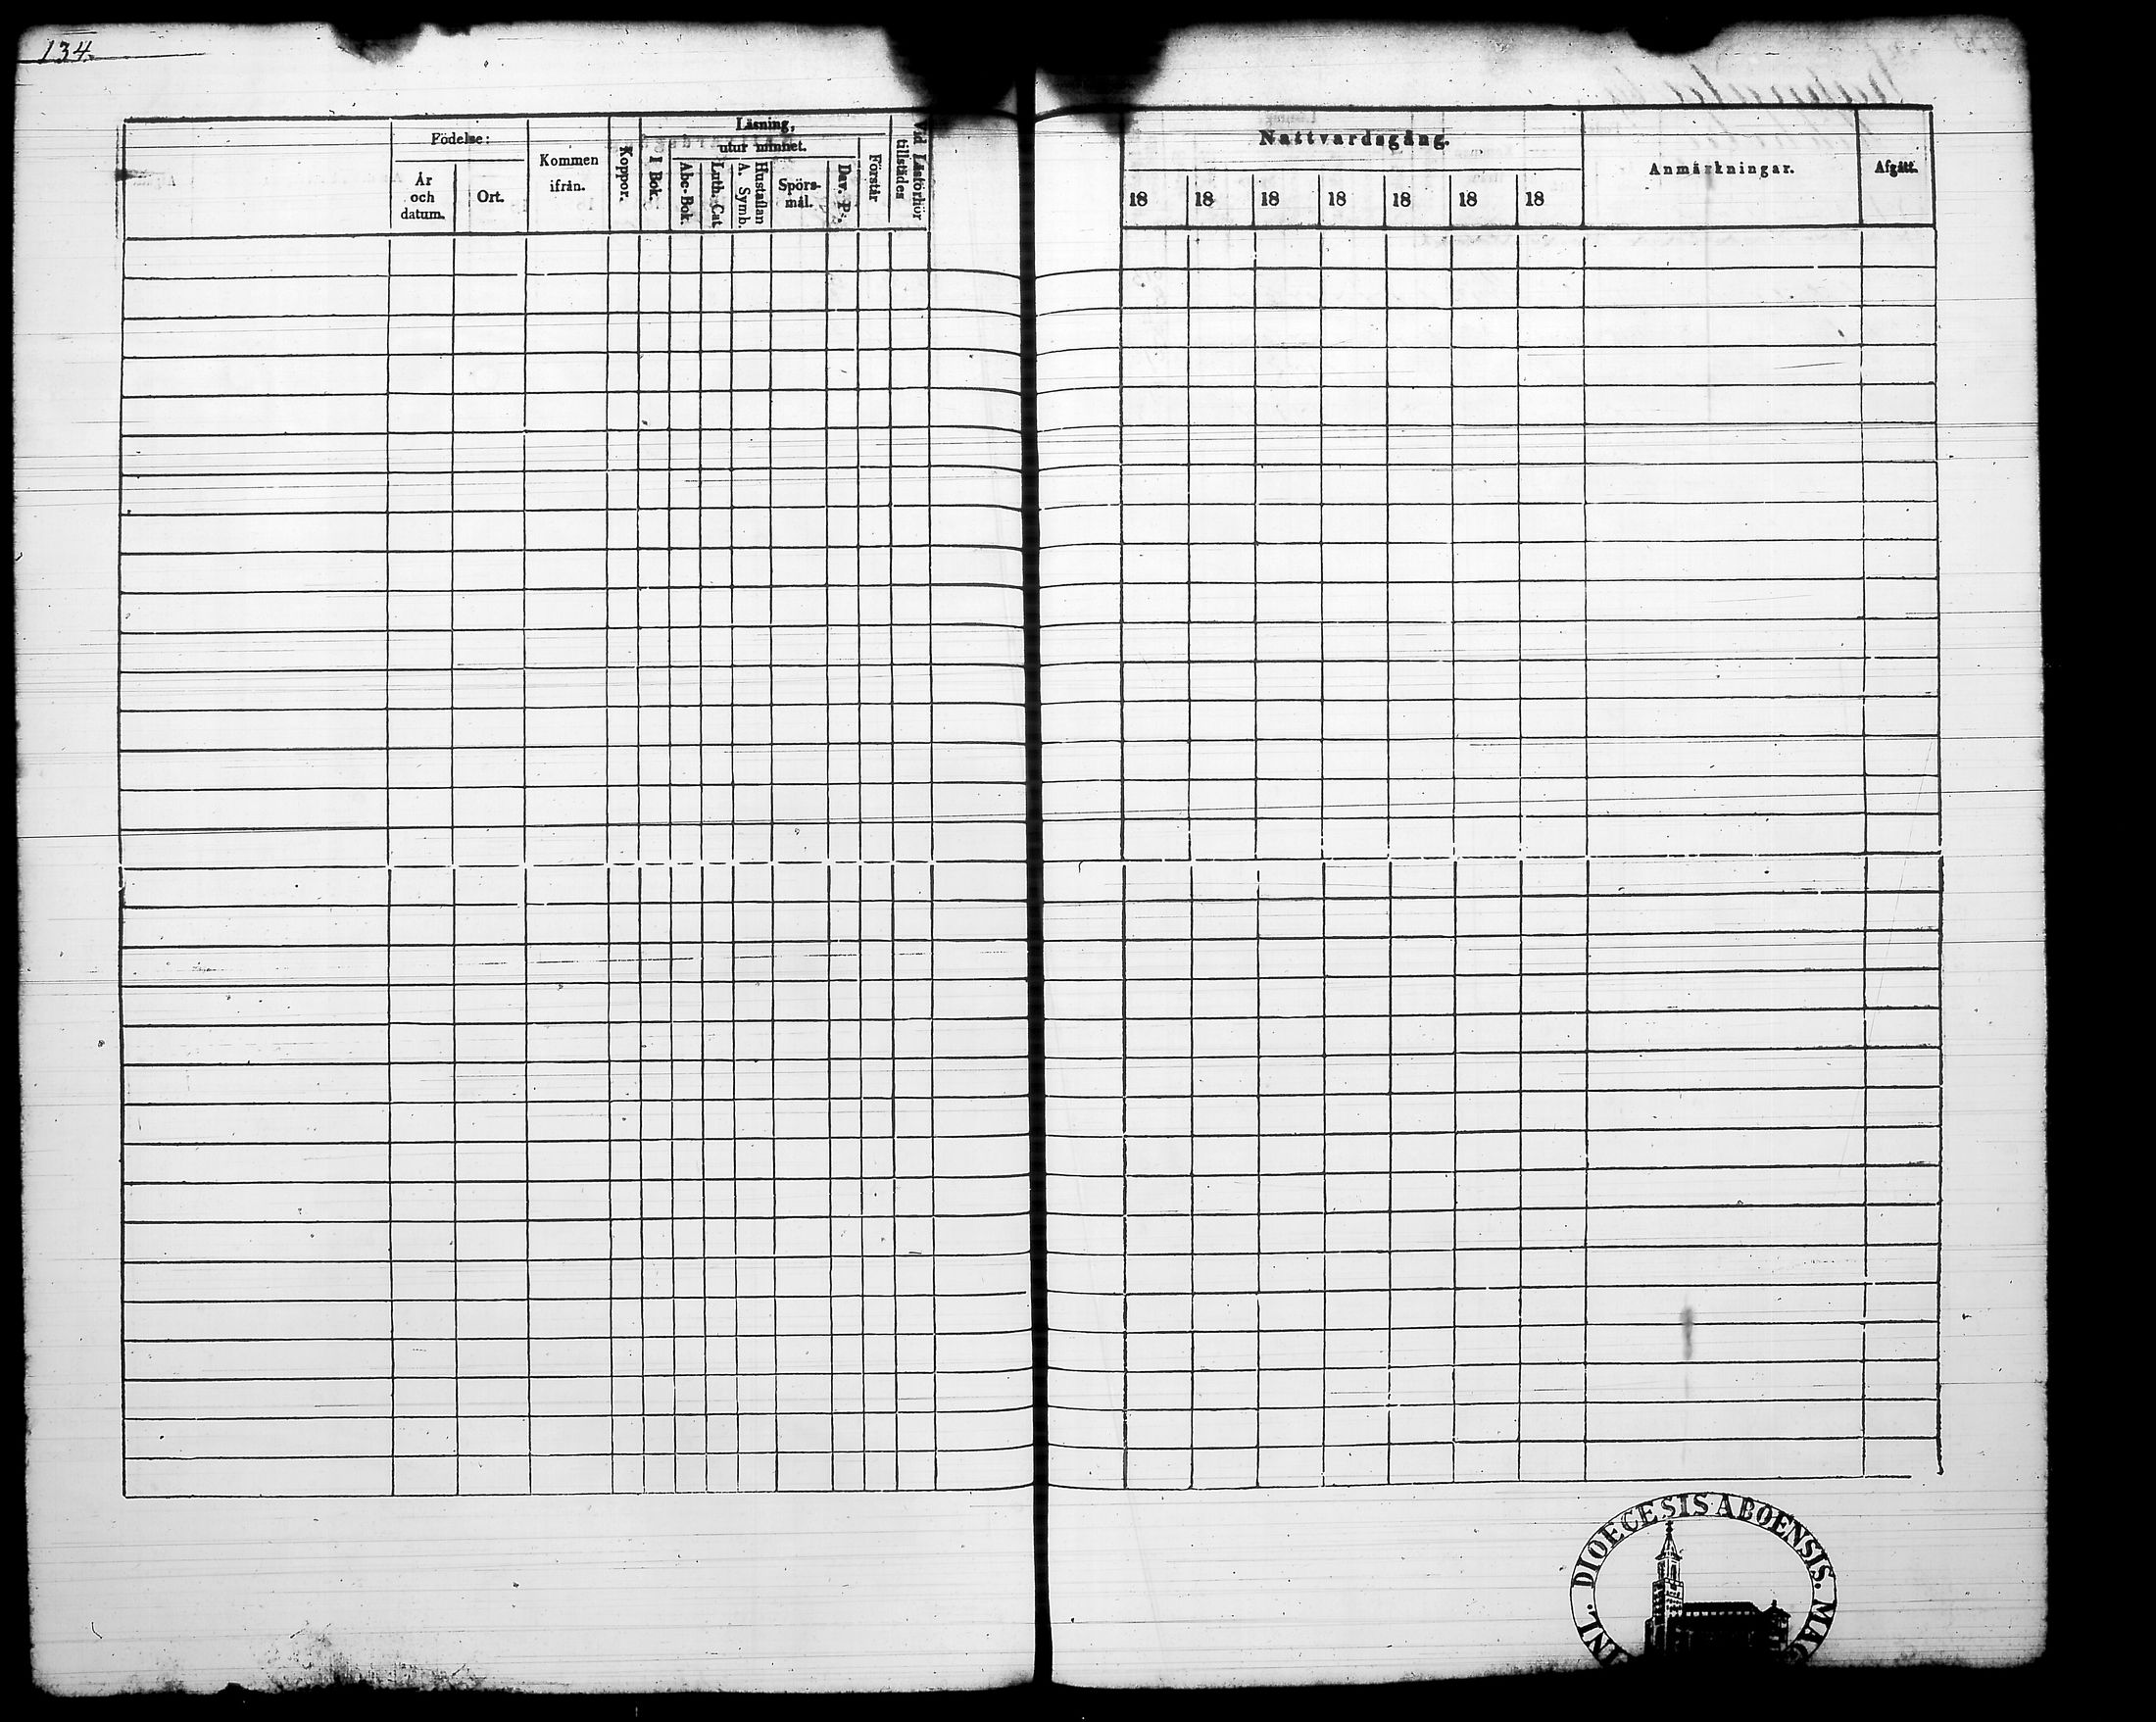 134.
Födelse:
År
och
datum.
Ort.
Kommen
ifrån.
Koppor.
Läsning,
utur minnet.
I Bok.
Abc-Bok.
Luth. Cat
A. Symb.
Hustaflan
Spörs-
mål.
Dav. Ps.
Förstår
Vid Läsförhör
tillstädes
Nattvardsgång.
18 18 18 18 18 18 18
Anmärkningar.
Afgått.
DIOECESIS ABOENSIS.